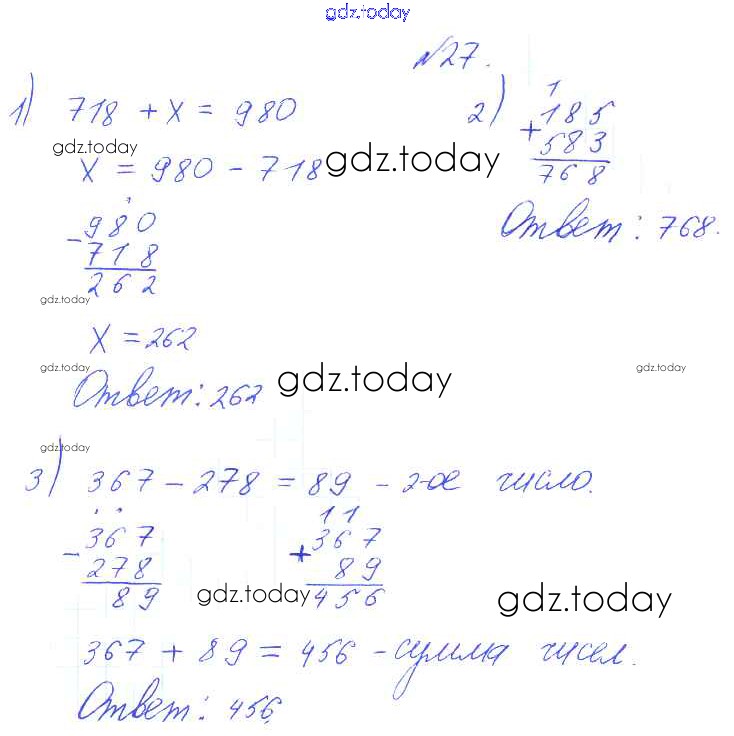 gdz.today
№27.
1) 718 + x = 980
gdz.today
x = 980 - 718
gdz.today
- 980
718
262
gdz.today
x = 262
gdz.today
Ответ: 262
gdz.today
2) 1
+ 185
583
768
Ответ: 768.
gdz.today
gdz.today
3) 367 - 278 = 89 - 2-ое число.
- 367
278
89
1 1
+ 367
89
456
gdz.today
gdz.today
367 + 89 = 456 - сумма чисел.
Ответ: 456.